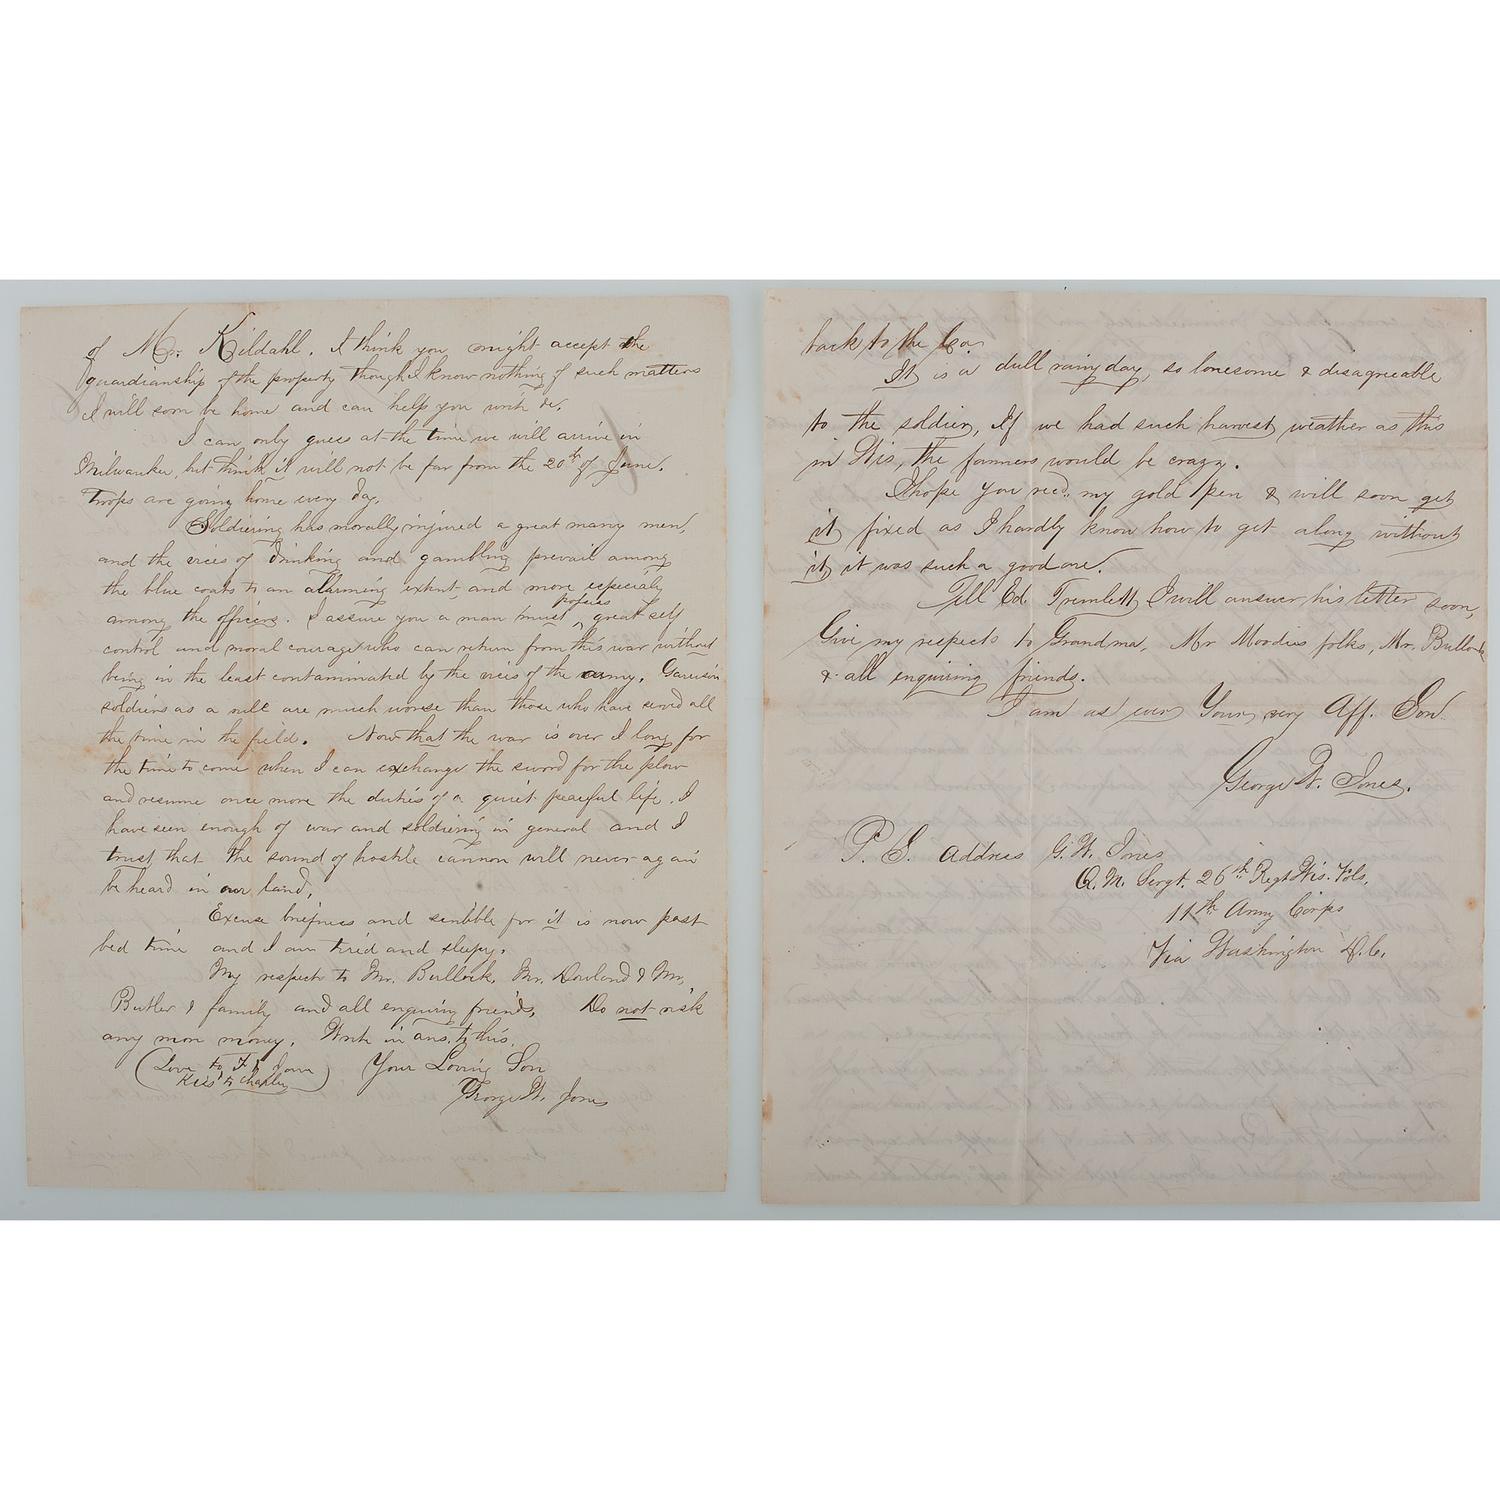 of Mr. Kildahl. I think you might accept the
guardianship of the property though I know nothing of such matters
I will soon be home and can help you with it.
I can only guess at the time we will arrive in
Milwaukee, but think it will not be far from the 20th of June.
Troops are going home every day.
Soldiering has morally injured a great many men,
and the vices of drinking and gambling prevail among
the blue coats to an alarming extent, and more especialy
among the officers. I assure you a man must ^ possess great self
control and moral courage who can return from this war without
being in the least contaminated by the vices of the army. Garrison
soldiers as a rule are much worse than those who have served all
the time in the field. Now that the war is over I long for
the time to come when I can exchange the sword for the plow
and resume once more the duties of a quiet peaceful life. I
have seen enough of war and soldiering in general and I
trust that the sound of hostile cannon will never again
be heard in our land.
Excuse briefness and scribble for it is now past
bed time and I am tired and sleepy.
My respect to Mr. Bullock, Mr. Dowland & Mr.
Butler & family and all enquiring friends. Do not risk
any more money. Write in ans. to this.
(Love to
Kiss to Charley)
Your Loving Son
George W. Jones
back to the Co.
It is a dull rainy day, so lonesome & disagreeable
to the soldier, If we had such harvest weather as this
in Wis, the farmers would be crazy.
I hope you recd. my gold pen & will soon get
it fixed as I hardly know how to get along without
it, it was such a good one.
Tell Ed. Tremlett I will answer his letter soon,
Give my respects to Grandma, Mr Moodies folks, Mr. Bullock
& all enquiring friends.
I am as ever Your very Aff. Son
George W. Jones.
P. S. Address G. W. Jones
Q. M. Sergt. 26th Regt Wis. Vols.
11th Army Corps
Via Washington D. C.